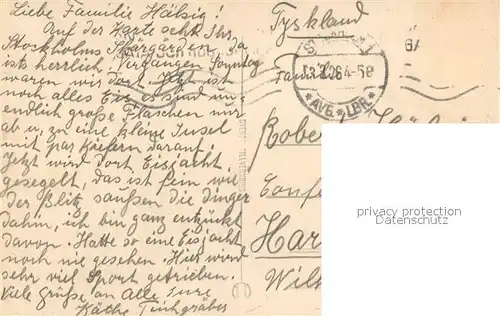 Liebe Familie Hälsig!
Auf der Karte seht Ihr
Stockholms Skärgården, da
ists herrlich, vergangen Sonntag
waren wir dort. Jetzt ist
noch alles Eis, es sind un-
endlich große Flächen nur
ab u. zu eine kleine Insel
mit paar Kiefern darauf.
Jetzt wird dort Eisjacht
gesegelt, das ist fein wie
der Blitz saußen die dinger
dahin, ich bin ganz entzückt
davon. Hatte so eine Eisjacht
noch nie gesehen. Hier wird
sehr viel Sport getrieben.
Viele Grüße an Alle Eure
Käthe
Tyskland
26 4-5
*AVG*LBR*
Familie
Robert
Conf
Har
Wil
privacy protection
Datenschutz